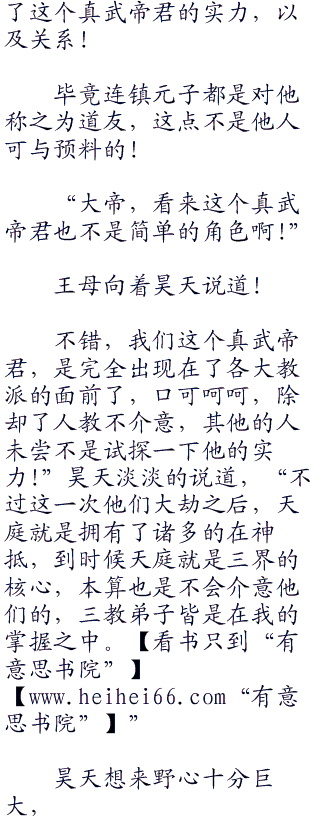 了这个真武帝君的实力，以
及关系！
毕竟连镇元子都是对他
称之为道友，这点不是他人
可与预料的！
“大帝，看来这个真武
帝君也不是简单的角色啊！”
王母向着昊天说道！
不错，我们这个真武帝
君，是完全出现在了各大教
派的面前了，口可呵呵，除
却了人教不介意，其他的人
未尝不是试探一下他的实
力！”昊天淡淡的说道，“不
过这一次他们大劫之后，天
庭就是拥有了诸多的在神
抵，到时候天庭就是三界的
核心，本算也是不会介意他
们的，三教弟子皆是在我的
掌握之中。【看书只到“有
意思书院”】
【www.heihei66.com“有意
思书院”】”
昊天想来野心十分巨
大，